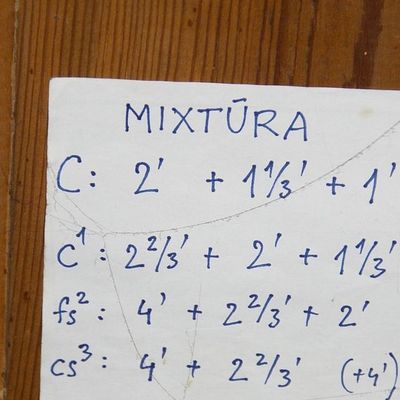 MIXTŪRA
C: 2' + 1 1/3' + 1'
c¹: 2 2/3' + 2' + 1 1/3'
fs²: 4' + 2 2/3' + 2'
cs³: 4' + 2 2/3' (+4')